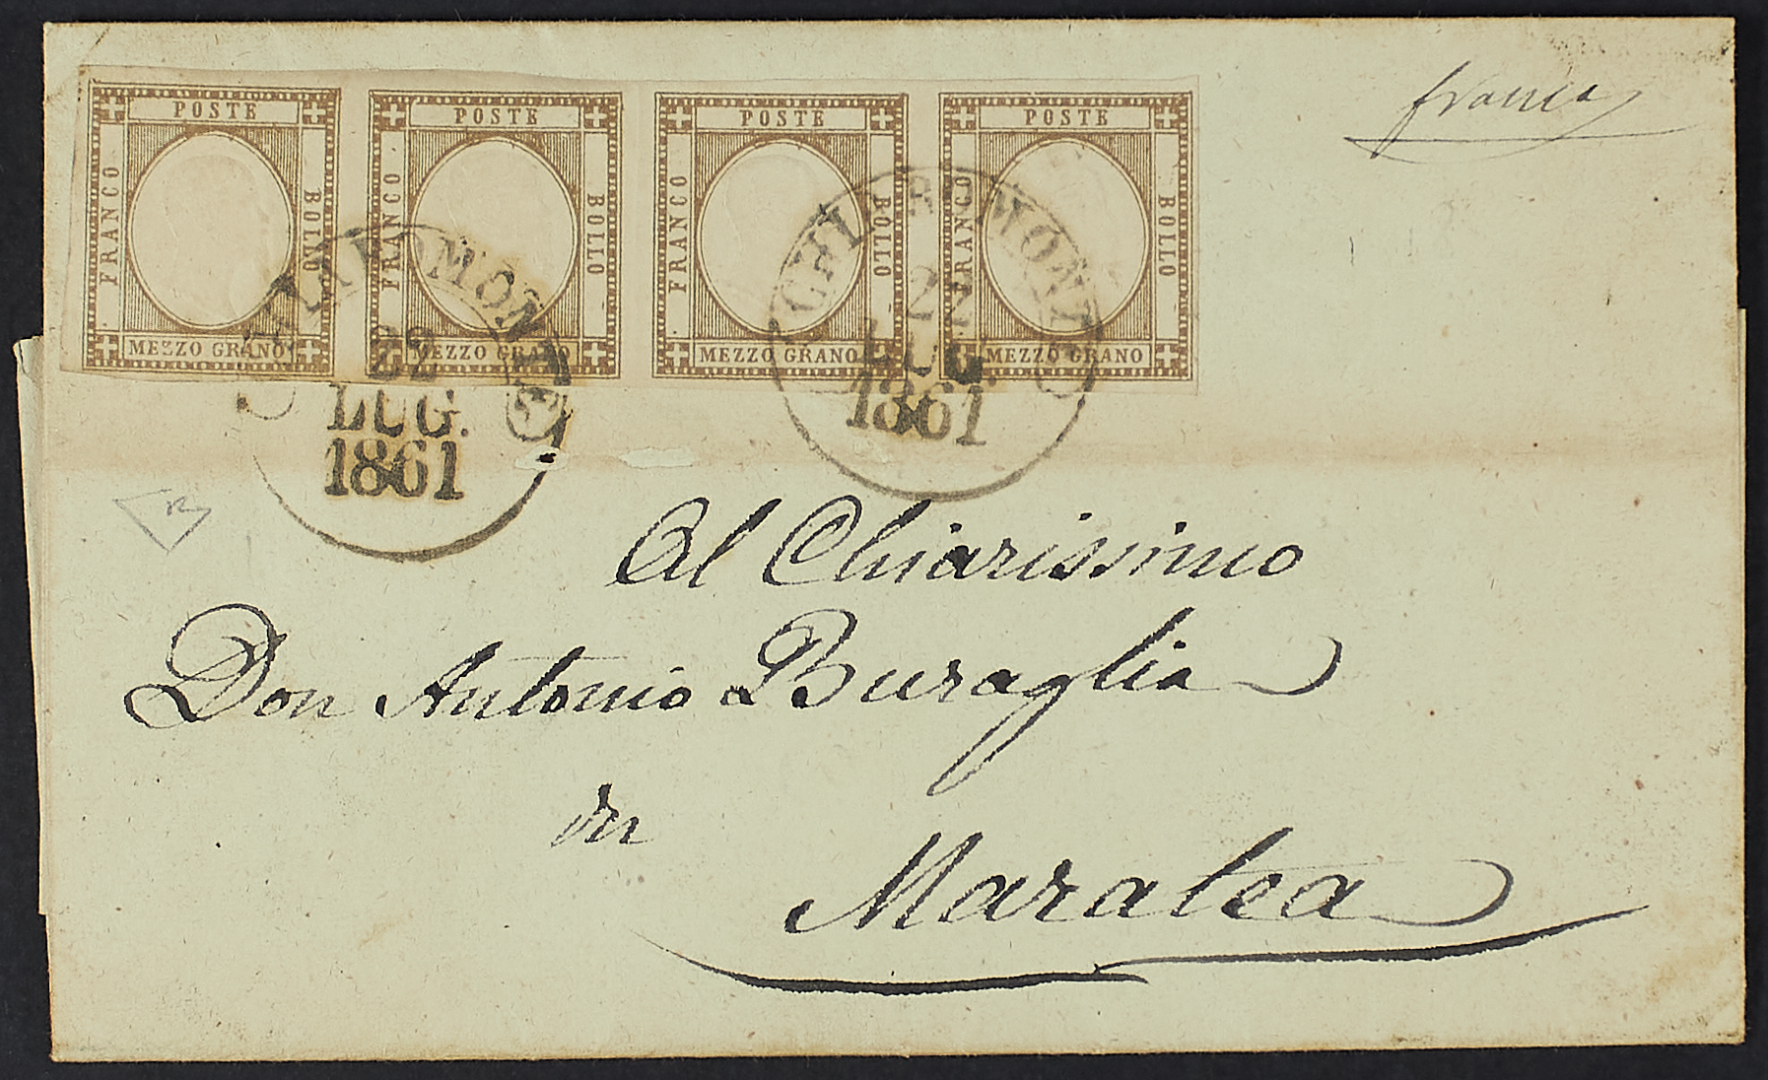 franca
POSTE
FRANCO
BOLLO
MEZZO GRANO
POSTE
FRANCO
BOLLO
MEZZO GRANO
POSTE
FRANCO
BOLLO
MEZZO GRANO
POSTE
FRANCO
BOLLO
MEZZO GRANO
CHIAROMONTE
22
LUG.
1861
CHIAROMONTE
22
LUG.
1861
Al Chiarissimo
Don Antonio Buraglia
in
Maratea